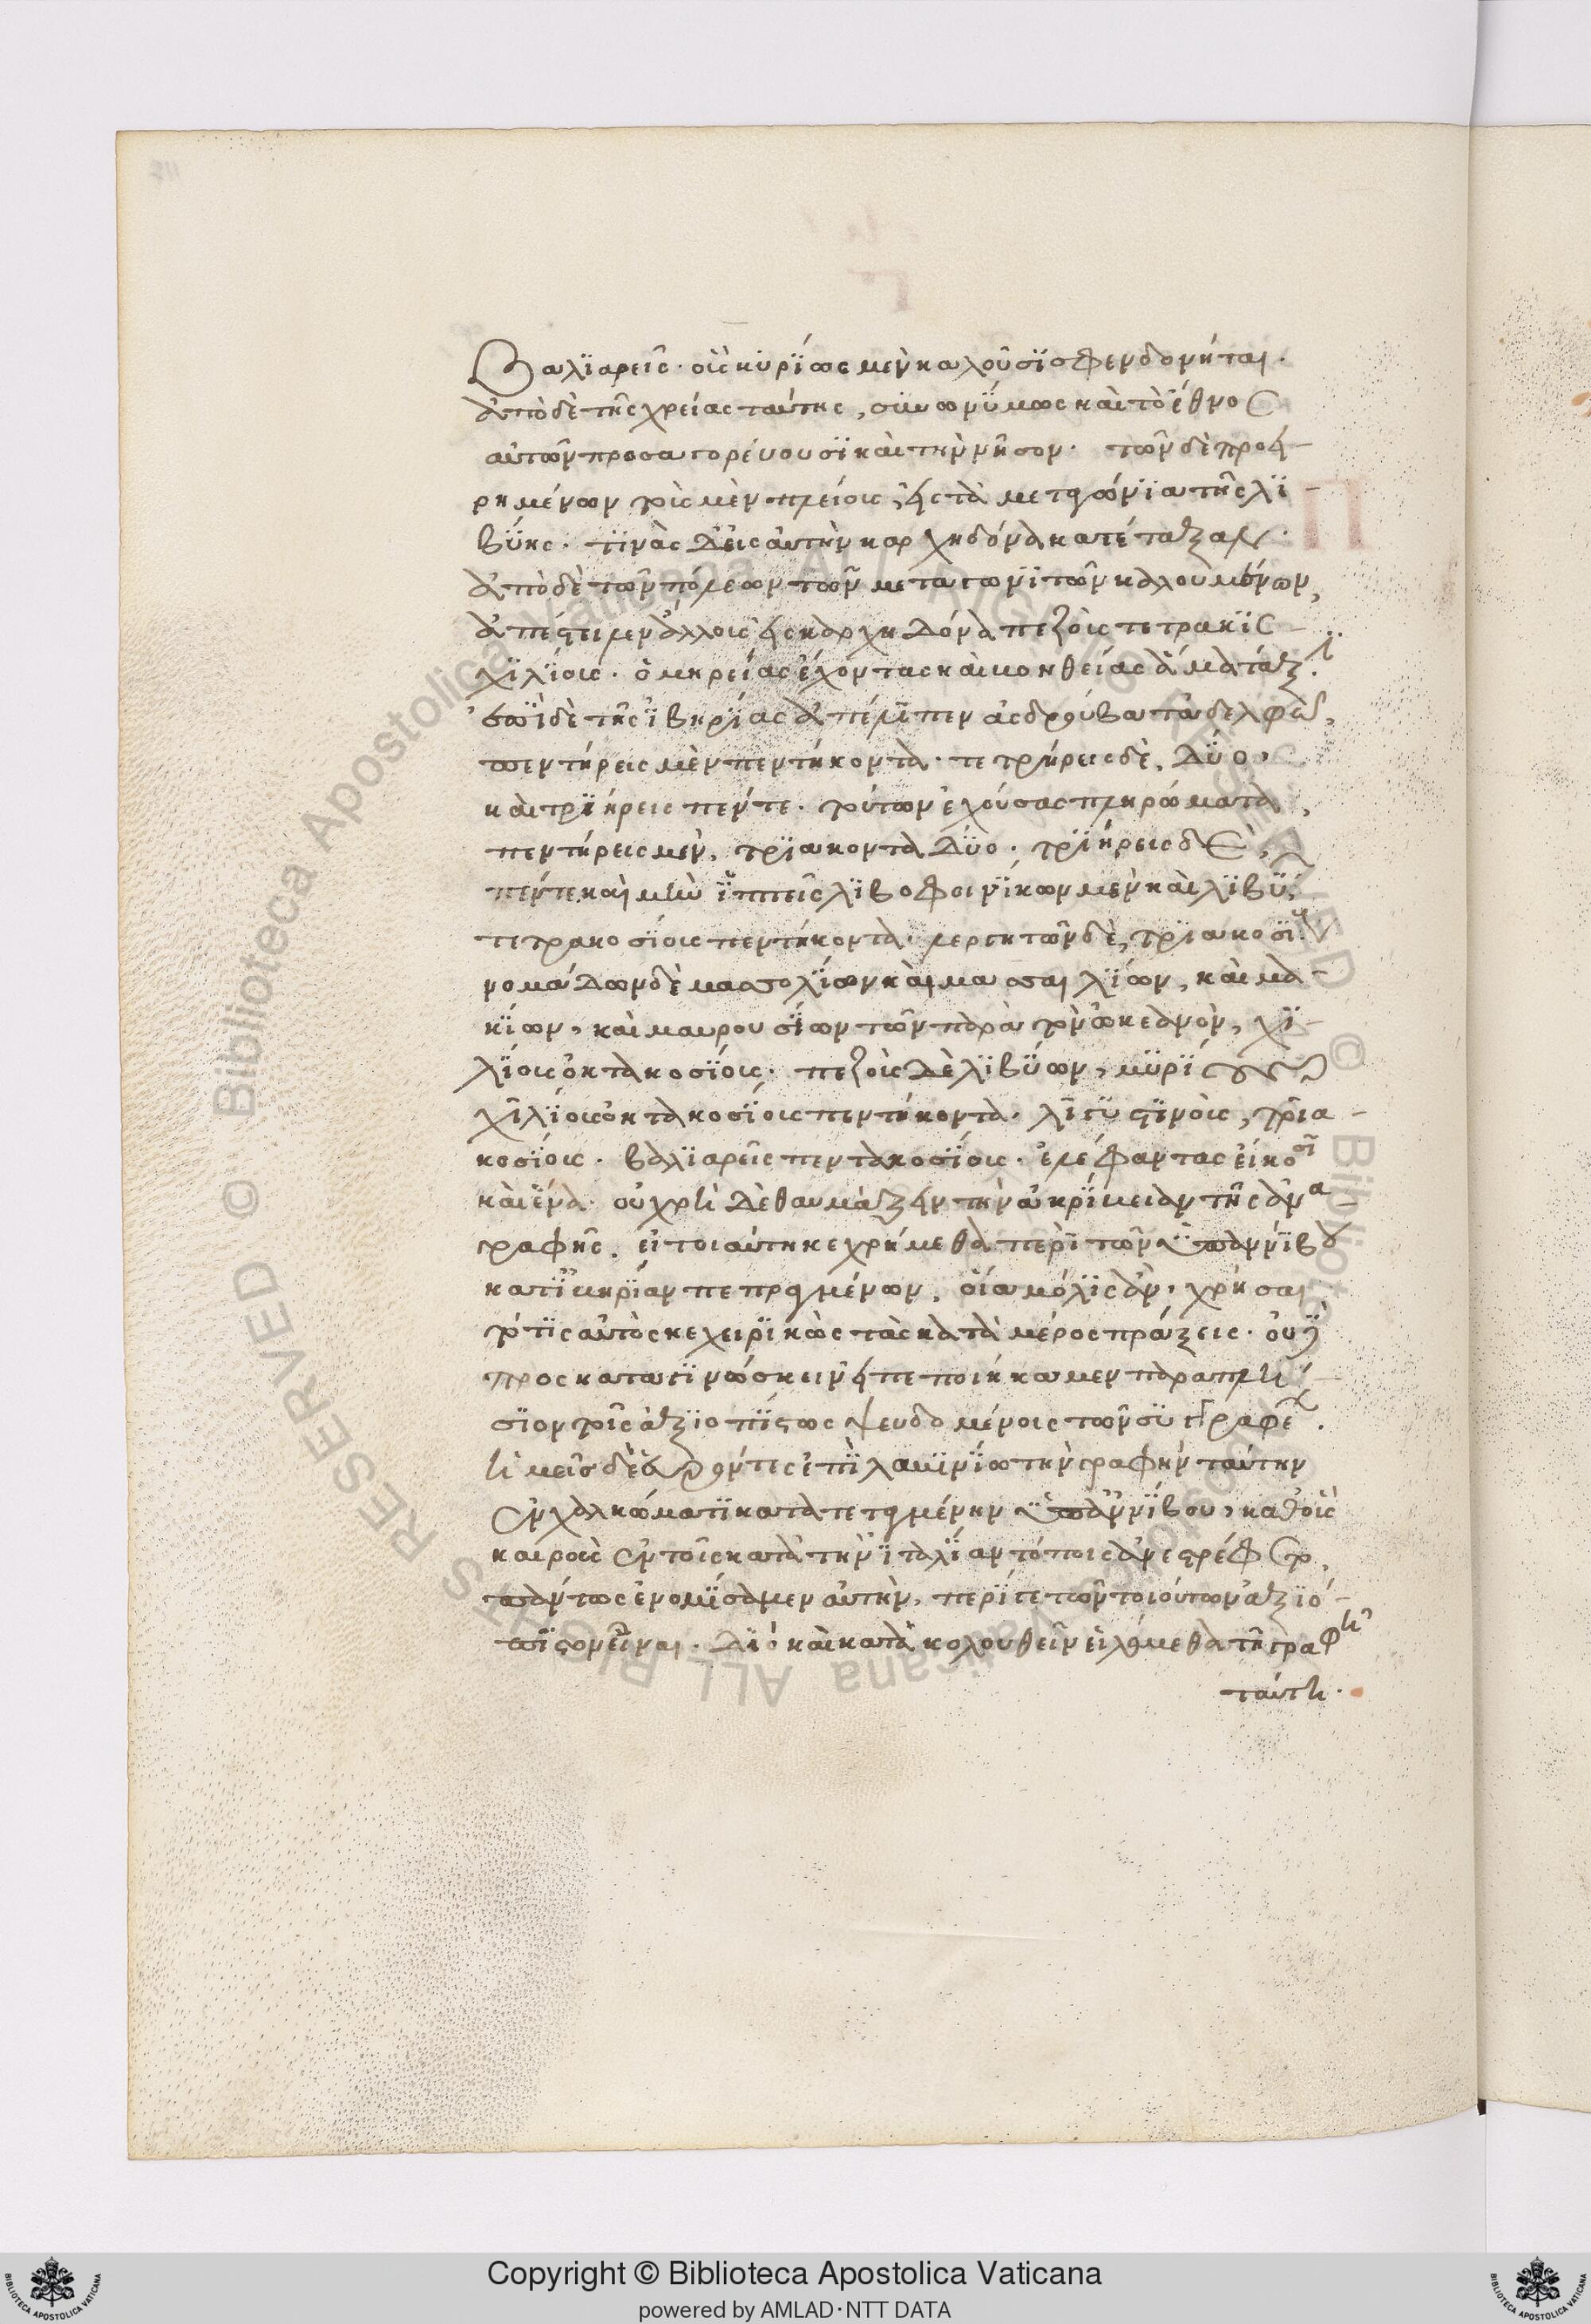 Βαλϊαρεῖς · οὓς κυρΐως μὲν καλοῦσϊ σφενδονῆται .
ἀπὸ δὲ τῆς χρείας ταύτης , συνωνΰμως καὶ τὸ ἔθνος
αὐτῶν προσαγορεύουσϊ καὶ τὴν νῆσον · τῶν δὲ προει
ρημένων τοὺς μὲν πλείους εἰς τὰ μεταγώνϊα τῆς λϊ -
βΰης · τϊνὰς δ' εἰς αὐτὴν καρχηδόνα κατέταξαν ·
ἀπὸ δὲ τῶν πόλεων τῶν μεταγωνϊτῶν καλουμένων ,
ἀπέστειλεν ἄλλους εἰς καρχηδόνα πεζοὺς τετρακϊς -
χϊλΐους · ὁμηρείας ἔχοντας καὶ βοηθείας ἅμα τάξιν .
ἐπῒ δὲ τῆς ϊβηρΐας ἀπέλιπεν ἀσδρούβα τἀδελφῶ ,
πεντήρεις μὲν πεντήκοντα · τετρήρεις δὲ , δΰο ,
καὶ τρϊήρεις πέντε · τούτων ἐχούσας πληρώματα ,
πεντήρεις μὲν , τρϊάκοντα δΰο · τρϊήρεις δὲ ,
πέντε. καὶ μὴν ἱππεῖς λϊβοφοινΐκων μὲν καὶ λϊβΰων
τετρακοσΐους πεντήκοντα · λεργητῶν δὲ , τρϊακοσΐους
νομάδων δὲ μασσολΐων καὶ μασαιλΐων , καὶ μα -
κΐων , καὶ μαυρουσΐων τῶν παρὰ τὸν ὠκεανὸν , χϊ -
λΐους ὀκτακοσΐους · πεζοὺς δὲ λϊβΰων , μυρΐους
χϊλΐους ὀκτακοσΐους πεντήκοντα · λϊγυστΐνους , τρϊα -
κοσΐους · βαλϊαρεῖς πεντακοσΐους · ἐλέφαντας εἴκοσϊ
καὶ ἕνα · οὐ χρὴ δὲ θαυμάζειν τὴν ἀκρΐβειαν τῆς ἀνα
γραφῆς . εἰ τοιαύτη κεχρήμεθα περῒ τῶν ὑπ' ἀννΐβου
κατ' ϊβηρΐαν πεπραγμένων , οἵα μόλϊς ἂν , χρήσαι
τό τϊς αὐτὸς κεχειρϊκὼς τὰς κατὰ μέρος πράξεις · οὐδὲ
προκαταγϊνώσκειν εἰ πεποιήκαμεν παραπλη -
σΐον τοῖς ἀξϊοπΐστως ψευδομένοις τῶν συγγραφέων .
ἡμεῖς δὲ εὑρόντες ἐπῒ λακϊνΐω τὴν γραφὴν ταύτην
ἐν χαλκώματϊ κατατεταγμένην ὑπ' ἀννΐβου , καθ' οὓς
καιροὺς ἐν τοῖς κατὰ τὴν ϊταλΐαν τόποις ἀνεστρέφετο ,
πάντως ἐνομΐσαμεν αὐτὴν , περΐ τε τῶν τοιούτων ἀξϊό -
πϊστον εἶναι . δϊὸ καὶ κατακολουθεῖν εἱλόμεθα τῆ γραφῆ
ταύτη .